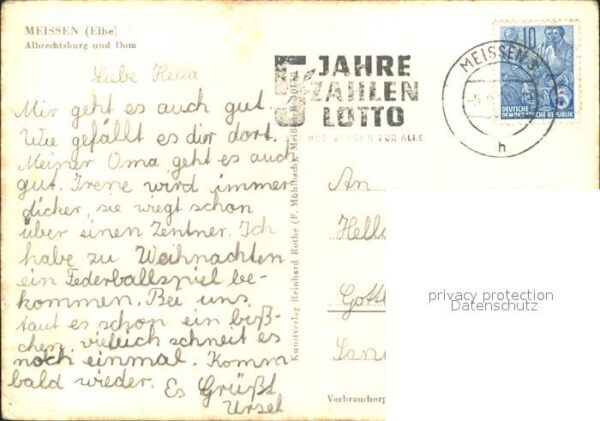 MEISSEN (Elbe)
Albrechtsburg und Dom
Liebe Hella
Mir geht es auch gut.
Wie gefällt es dir dort.
Meiner Oma geht es auch
gut. Irene wird immer
dicker, sie wiegt schon
über einen Zentner. Ich
habe zu Weihnachten
ein Federballspiel be-
kommen. Bei uns
taut es schon ein biß-
chen, vieleich schneit es
noch einmal. Komm
bald wieder.
Es Grüßt
Ursel
Kunstverlag Reinhard Rothe (F. Mühlbach), Meißen
5 JAHRE
ZAHLEN
LOTTO
FÜR ALLE
MEISSEN 3
h
10
5
DEUTSCHE
DEMOKRATISCHE REPUBLIK
An
Hella
Gott
San
Verbraucherp
privacy protection
Datenschutz